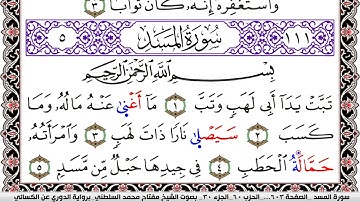 وَاسْتَغْفِرْهُ إِنَّهُ كَانَ تَوَّابًا ٣
١١١ سُورَةُ المَسَدِ ٥
بِسْمِ اللَّهِ الرَّحْمَٰنِ الرَّحِيمِ
تَبَّتْ يَدَا أَبِي لَهَبٍ وَتَبَّ ١ مَا أَغْنَىٰ عَنْهُ مَالُهُ وَمَا
كَسَبَ ٢ سَيَصْلَىٰ نَارًا ذَاتَ لَهَبٍ ٣ وَامْرَأَتُهُ
حَمَّالَةُ الْحَطَبِ ٤ فِي جِيدِهَا حَبْلٌ مِّن مَّسَدٍ ٥
سورة المسد الصفحة ٦٠٣ الحزب ٦٠ الجزء ٣٠ بصوت الشيخ مفتاح محمد السلطني برواية الدوري عن الكسائي